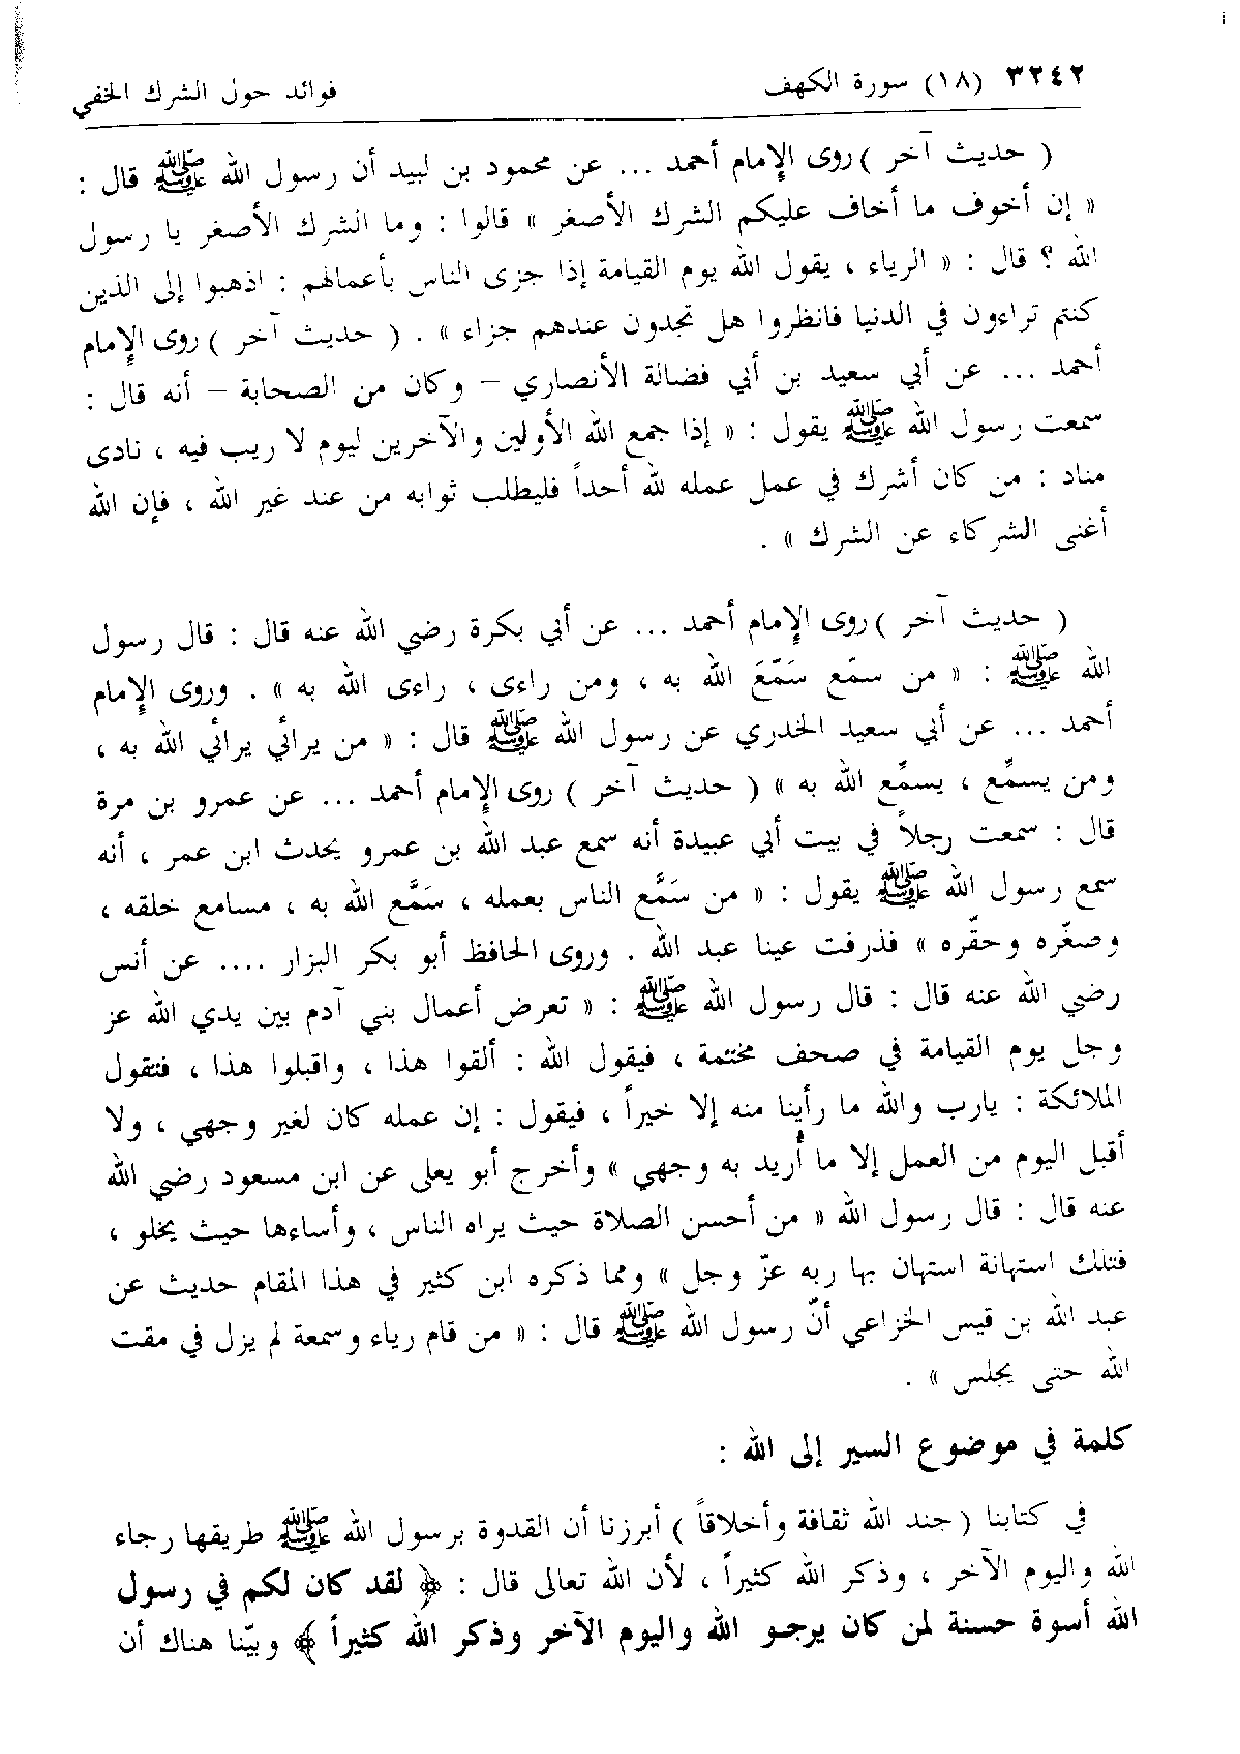 ٣٢٤٢ (١٨) سورة الكهف فوائد حول الشرك الخفي
( حديث آخر ) روى الإمام أحمد ... عن محمود بن لبيد أن رسول الله ﷺ قال :
« إن أخوف ما أخاف عليكم الشرك الأصغر » قالوا : وما الشرك الأصغر يا رسول
الله ؟ قال : « الرياء ، يقول الله يوم القيامة إذا جزى الناس بأعمالهم : اذهبوا إلى الذين
كنتم تراءون في الدنيا فانظروا هل تجدون عندهم جزاء » . ( حديث آخر ) روى الإمام
أحمد ... عن أبي سعيد بن أبي فضالة الأنصاري – وكان من الصحابة – أنه قال :
سمعت رسول الله ﷺ يقول : « إذا جمع الله الأولين والآخرين ليوم لا ريب فيه ، نادى
مناد : من كان أشرك في عمل عمله لله أحداً فليطلب ثوابه من عند غير الله ، فإن الله
أغنى الشركاء عن الشرك » .
( حديث آخر ) روى الإمام أحمد ... عن أبي بكرة رضي الله عنه قال : قال رسول
الله ﷺ : « من سمّع سَمَّعَ الله به ، ومن راءى ، راءى الله به » . وروى الإمام
أحمد ... عن أبي سعيد الخدري عن رسول الله ﷺ قال : « من يرائي يرائي الله به ،
ومن يسمِّع ، يسمِّع الله به » ( حديث آخر ) روى الإمام أحمد ... عن عمرو بن مرة
قال : سمعت رجلاً في بيت أبي عبيدة أنه سمع عبد الله بن عمرو يحدث ابن عمر ، أنه
سمع رسول الله ﷺ يقول : « من سَمَّع الناس بعمله ، سَمَّع الله به ، مسامع خلقه ،
وصغّره وحقّره » فذرفت عينا عبد الله . وروى الحافظ أبو بكر البزار .... عن أنس
رضي الله عنه قال : قال رسول الله ﷺ : « تعرض أعمال بني آدم بين يدي الله عز
وجل يوم القيامة في صحف مختمة ، فيقول الله : ألقوا هذا ، واقبلوا هذا ، فتقول
الملائكة : يارب والله ما رأينا منه إلا خيراً ، فيقول : إن عمله كان لغير وجهي ، ولا
أقبل اليوم من العمل إلا ما أُريد به وجهي » وأخرج أبو يعلى عن ابن مسعود رضي الله
عنه قال : قال رسول الله « من أحسن الصلاة حيث يراه الناس ، وأساءها حيث يخلو ،
فتلك استهانة استهان بها ربه عزّ وجل » ومما ذكره ابن كثير في هذا المقام حديث عن
عبد الله بن قيس الخزاعي أنّ رسول الله ﷺ قال : « من قام رياء وسمعة لم يزل في مقت
الله حتى يجلس » .
كلمة في موضوع السير إلى الله :
في كتابنا ( جند الله ثقافة وأخلاقاً ) أبرزنا أن القدوة برسول الله ﷺ طريقها رجاء
الله واليوم الآخر ، وذكر الله كثيراً ، لأن الله تعالى قال : ﴿ لقد كان لكم في رسول
الله أسوة حسنة لمن كان يرجو الله واليوم الآخر وذكر الله كثيراً ﴾ وبيّنا هناك أن